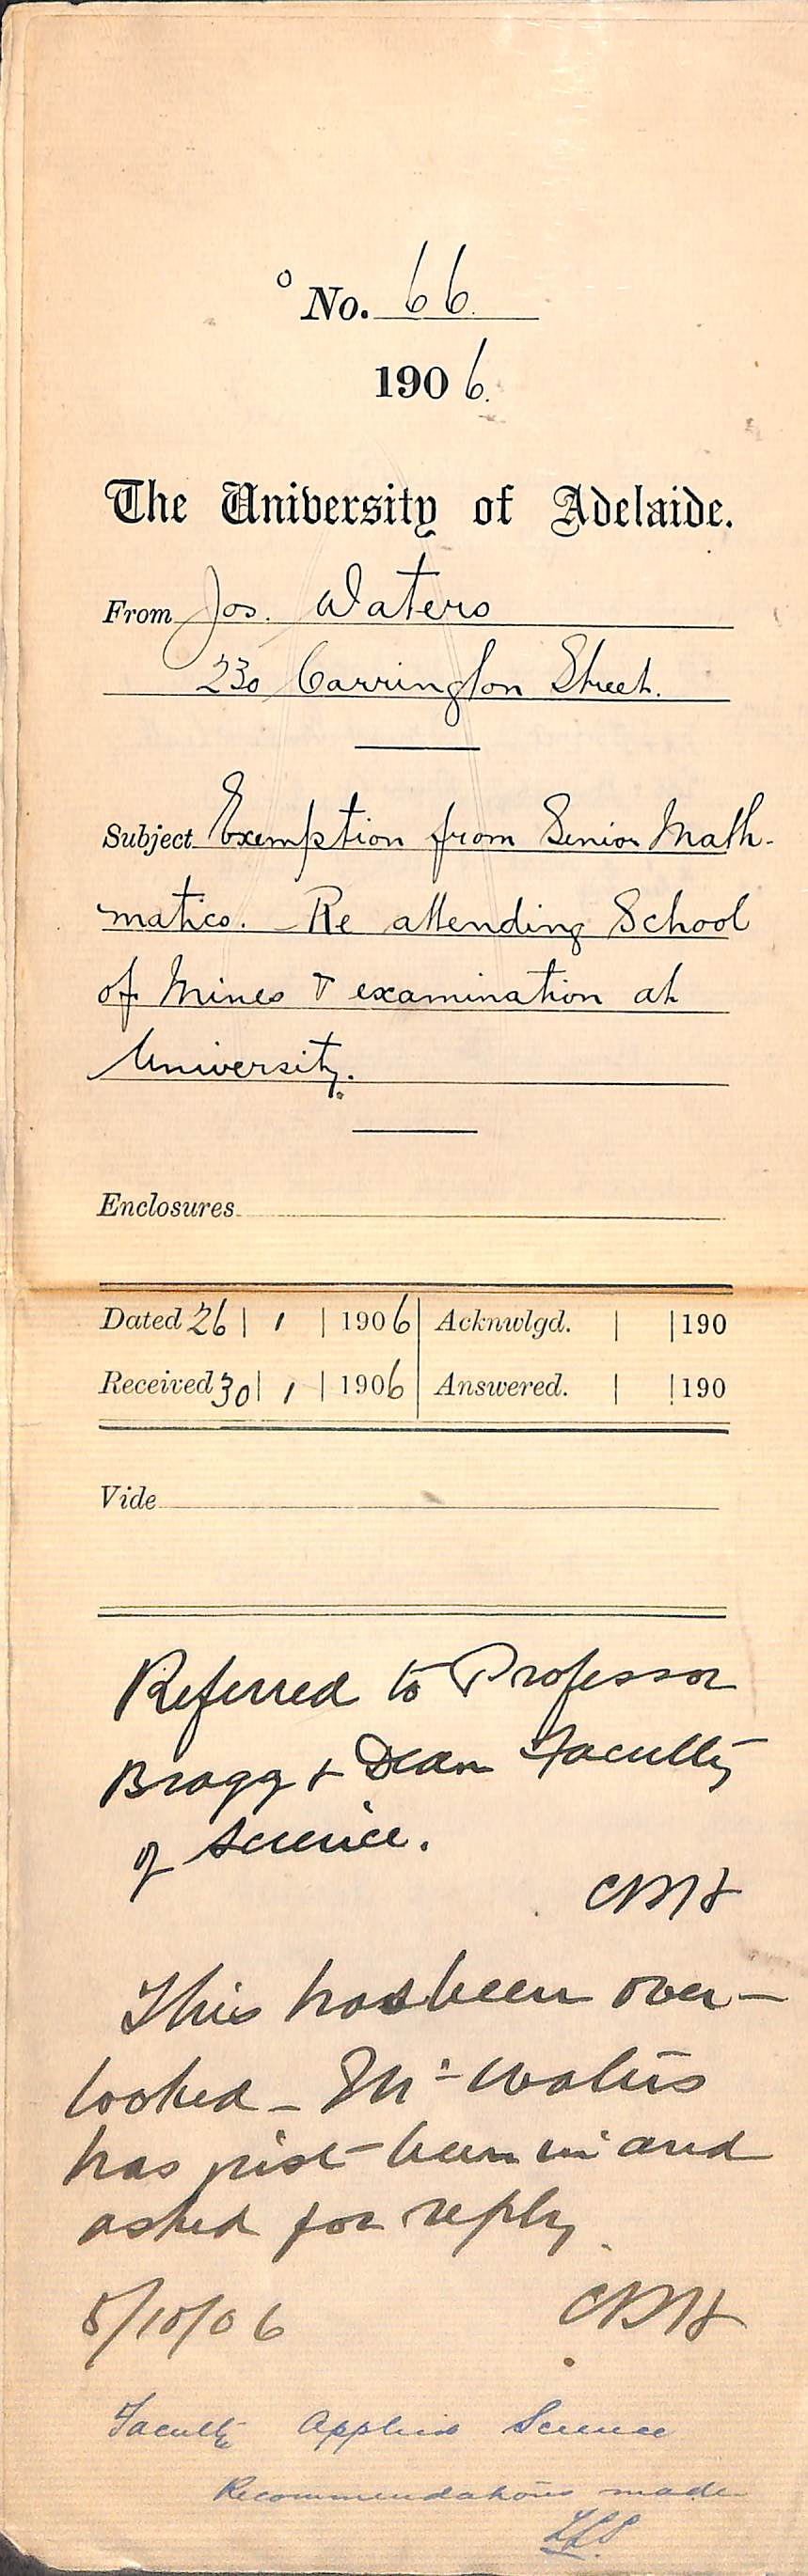 No. 66
1906.
The University of Adelaide.
From Jos. Waters
230 Carrington Street.
Subject Exemption from Senior Math-
matics. - Re attending School
of Mines & examination at
University.
Enclosures
Dated 26 | 1 | 1906 | Acknwlgd. | | 190
Received 30 | 1 | 1906 | Answered. | | 190
Vide
Referred to Professor
Bragg & Dean Faculty
of Science.
This has been over-
looked - Mr Waters
has just been in and
asked for reply.
5/10/06
Faculty Applied Science
Recommendations made